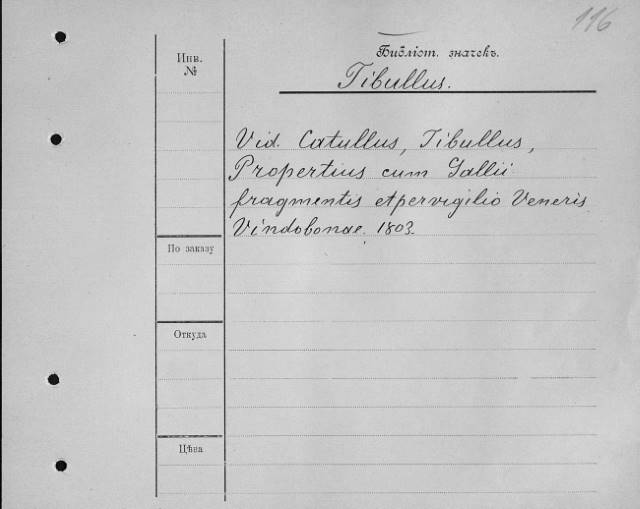 116
Библіот. значекъ.
Инв.
№
Tibullus.
Vid. Catullus, Tibullus,
Propertius cum Gallii
fragmentis et pervigilio Veneris
Vindobonae. 1803.
По заказу
Откуда
Цѣна